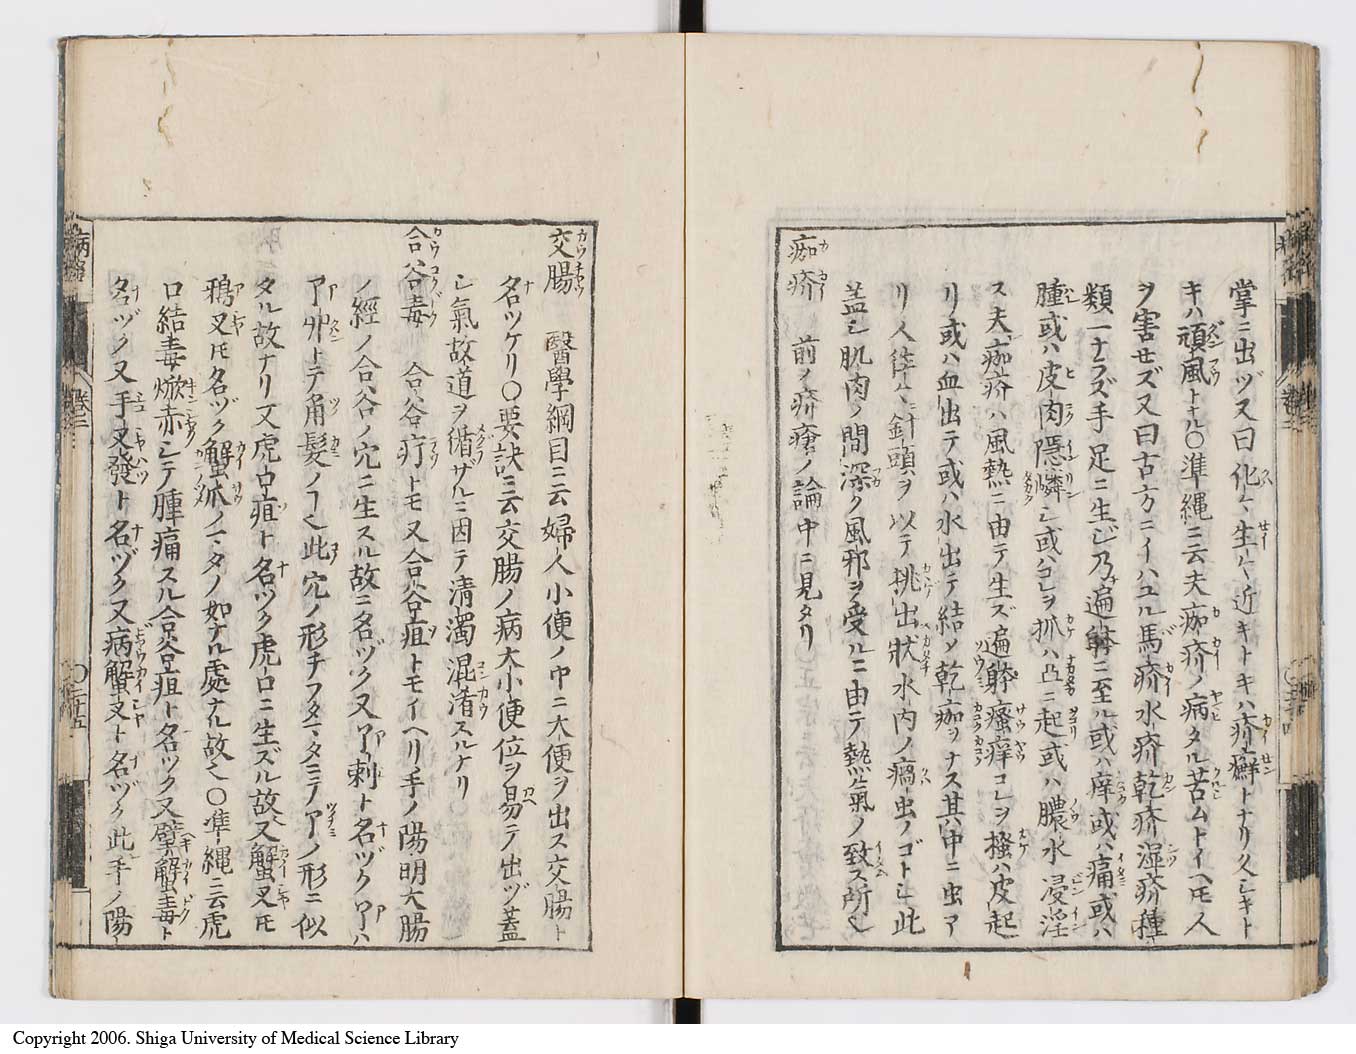 掌ニ出ヅ又曰化々生々近キトキハ疥癬トナリ久シキト
キハ頑風トナル〇準縄ニ云夫痂疥ノ病タル苦ムトイヘモ人
ヲ害セズ又曰古方ニイハユル馬疥水疥乾疥湿疥種
類一ナラズ手足ニ生乃遍躰ニ至ル或ハ痒或ハ痛或ハ
腫或ハ皮肉隠憐シ或ハコレヲ抓ハ凸ニ起或ハ膿水浸淫
ス夫痂疥ハ風熱ニ由テ生ズ遍躰瘙痒コレヲ搔ハ皮起
リ或ハ血出テ或ハ水出テ結ンテ乾痂ヲナス其中ニ虫ア
リ人往々針頭ヲ以テ挑出状水内ノ痴虫ノゴトシ此
蓋シ肌肉ノ間深ク風邪ヲ受ルニ由テ熱気ノ致ス所也
痂疥 前ノ疥瘡ノ論中ニ見タリ
交腸 醫學綱目ニ云婦人小便ノ中ニ大便ヲ出ス交腸ト
名ツケリ〇要訣ニ云交腸ノ病大小便位ヲ易テ出ヅ蓋
シ氣故道ヲ循ザルニ因テ清濁混淆スルナリ
合谷毒 合谷疔トモ又合谷疽トモイヘリ手ノ陽明大腸
ノ經ノ合谷ノ穴ニ生スル故ニ名ヅク又丫刺ト名ツク丫ハ
丫丱トテ角髮ノ也此穴ノ形チフタマタニテ丫ノ形ニ似
タル故ナリ又虎口疽ト名ツク虎口ニ生ズル故又蟹叉モ
鴉叉モ名ヅク蟹爪ノマタノ如ナル處ナル故也〇準縄ニ云虎
口結毒焮赤シテ腫痛スル合谷疽ト名ツク又擘蟹毒ト
名ヅク又手叉發ト名ヅク又病蟹叉ト名ヅク此手ノ陽
Copyright 2006. Shiga University of Medical Science Library